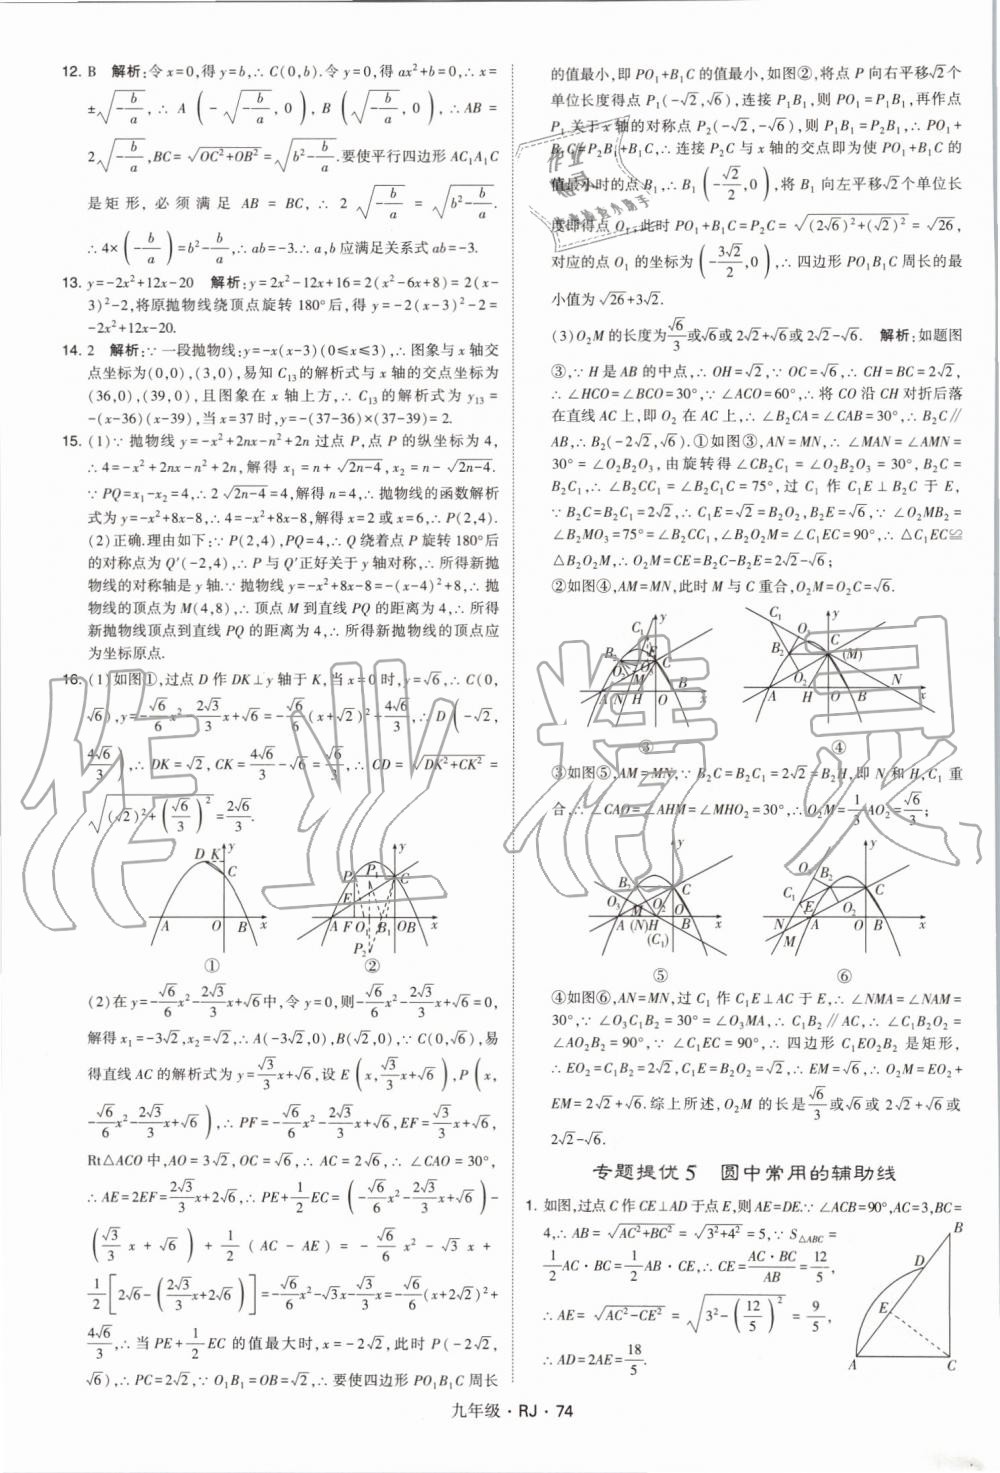 12. B　解析:令x=0,得y=b,∴C(0,b).令y=0,得ax²+b=0,∴x=
±√(-b/a),∴A(-√(-b/a),0),B(√(-b/a),0),∴AB=
2√(-b/a),BC=√(OC²+OB²)=√(b²-b/a).要使平行四边形AC₁A₁C
是矩形,必须满足AB=BC,∴2√(-b/a)=√(b²-b/a).
∴4×(-b/a)=b²-b/a,∴ab=-3.∴a,b应满足关系式ab=-3.
13. y=-2x²+12x-20　解析:y=2x²-12x+16=2(x²-6x+8)=2(x-
3)²-2,将原抛物线绕顶点旋转180°后,得y=-2(x-3)²-2=
-2x²+12x-20.
14. 2　解析:∵一段抛物线:y=-x(x-3)(0≤x≤3),∴图象与x轴交
点坐标为(0,0),(3,0),易知C₁₃的解析式与x轴的交点坐标为
(36,0),(39,0),且图象在x轴上方,∴C₁₃的解析式为y₁₃=
-(x-36)(x-39),当x=37时,y=-(37-36)×(37-39)=2.
15. (1)∵抛物线y=-x²+2nx-n²+2n过点P,点P的纵坐标为4,
∴4=-x²+2nx-n²+2n,解得x₁=n+√(2n-4),x₂=n-√(2n-4).
∵PQ=x₁-x₂=4,∴2√(2n-4)=4,解得n=4,∴抛物线的函数解析
式为y=-x²+8x-8,∴4=-x²+8x-8,解得x=2或x=6,∴P(2,4).
(2)正确.理由如下:∵P(2,4),PQ=4,∴Q绕着点P旋转180°后
的对称点为Q′(-2,4),∴P与Q′正好关于y轴对称,∴所得新
抛物线的对称轴是y轴.∵抛物线y=-x²+8x-8=-(x-4)²+8,∴抛
物线的顶点为M(4,8),∴顶点M到直线PQ的距离为4,∴所得
新抛物线顶点到直线PQ的距离为4,∴所得新抛物线的顶点应
为坐标原点.
16. (1)如图①,过点D作DK⊥y轴于K,当x=0时,y=√6,∴C(0,
√6),y=-√6/6x²-2√3/3x+√6=-√6/6(x+√2)²+4√6/3,∴D(-√2,
4√6/3),∴DK=√2,CK=4√6/3-√6=√6/3,∴CD=√(DK²+CK²)=
√((√2)²+(√6/3)²)=2√6/3.
D K y C A O B x
①
P y P₁ C E A F O₁ B₁ O B x P₂
②
(2)在y=-√6/6x²-2√3/3x+√6中,令y=0,则-√6/6x²-2√3/3x+√6=0,
解得x₁=-3√2,x₂=√2,∴A(-3√2,0),B(√2,0),∵C(0,√6),易
得直线AC的解析式为y=√3/3x+√6,设E(x,√3/3x+√6),P(x,
-√6/6x²-2√3/3x+√6),∴PF=-√6/6x²-2√3/3x+√6,EF=√3/3x+√6,
Rt△ACO中,AO=3√2,OC=√6,∴AC=2√6,∴∠CAO=30°,
∴AE=2EF=2√3/3x+2√6,∴PE+1/2EC=(-√6/6x²-2√3/3x+√6)-
(√3/3x+√6)+1/2(AC-AE)=-√6/6x²-√3x+
1/2[2√6-(2√3/3x+2√6)]=-√6/6x²-√3x-√3/3x=-√6/6(x+2√2)²+
4√6/3,∴当PE+1/2EC的值最大时,x=-2√2,此时P(-2√2,
√6),∴PC=2√2,∵O₁B₁=OB=√2,∴要使四边形PO₁B₁C周长
的值最小,即PO₁+B₁C的值最小,如图②,将点P向右平移√2个
单位长度得点P₁(-√2,√6),连接P₁B₁,则PO₁=P₁B₁,再作点
P₁关于x轴的对称点P₂(-√2,-√6),则P₁B₁=P₂B₁,∴PO₁+
B₁C=P₂B₁+B₁C,∴连接P₂C与x轴的交点即为使PO₁+B₁C的
值最小时的点B₁,∴B₁(-√2/2,0),将B₁向左平移√2个单位长
度即得点O₁,此时PO₁+B₁C=P₂C=√((2√6)²+(√2)²)=√26,
对应的点O₁的坐标为(-3√2/2,0),∴四边形PO₁B₁C周长的最
小值为√26+3√2.
(3)O₂M的长度为√6/3或√6或2√2+√6或2√2-√6.　解析:如题图
③,∵H是AB的中点,∴OH=√2,∵OC=√6,∴CH=BC=2√2,
∴∠HCO=∠BCO=30°,∵∠ACO=60°,∴将CO沿CH对折后落
在直线AC上,即O₂在AC上,∴∠B₂CA=∠CAB=30°,∴B₂C∥
AB,∴B₂(-2√2,√6).①如图③,AN=MN,∴∠MAN=∠AMN=
30°=∠O₂B₂O₃,由旋转得∠CB₂C₁=∠O₂B₂O₃=30°,B₂C=
B₂C₁,∴∠B₂CC₁=∠B₂C₁C=75°,过C₁作C₁E⊥B₂C于E,
∵B₂C=B₂C₁=2√2,∴C₁E=√2=B₂O₂,B₂E=√6,∵∠O₂MB₂=
∠B₂MO₃=75°=∠B₂CC₁,∠B₂O₂M=∠C₁EC=90°,∴△C₁EC≌
△B₂O₂M,∴O₂M=CE=B₂C-B₂E=2√2-√6;
②如图④,AM=MN,此时M与C重合,O₂M=O₂C=√6.
C₁ y B₂ E C O₂ O₃ M B A N H O x
③
C₁ y O₃ B₂ C (M) O₂ N A H O B x
④
③如图⑤,AM=MN,∵B₂C=B₂C₁=2√2=B₂H,即N和H、C₁重
合,∴∠CAO=∠AHM=∠MHO₂=30°,∴O₂M=1/3AO₂=√6/3;
y B₂ C O₃ M O₂ O A (N)H B x (C₁)
⑤
O₃ y B₂ C C₁ E O₂ N A O B x M
⑥
④如图⑥,AN=MN,过C₁作C₁E⊥AC于E,∴∠NMA=∠NAM=
30°,∵∠O₃C₁B₂=30°=∠O₃MA,∴C₁B₂∥AC,∴∠C₁B₂O₂=
∠AO₂B₂=90°,∵∠C₁EC=90°,∴四边形C₁EO₂B₂是矩形,
∴EO₂=C₁B₂=2√2,C₁E=B₂O₂=√2,∴EM=√6,∴O₂M=EO₂+
EM=2√2+√6.综上所述,O₂M的长是√6/3或√6或2√2+√6或
2√2-√6.
专题提优5　圆中常用的辅助线
1. 如图,过点C作CE⊥AD于点E,则AE=DE.∵∠ACB=90°,AC=3,BC=
4,∴AB=√(AC²+BC²)=√(3²+4²)=5,∵S△ABC=
1/2AC·BC=1/2AB·CE,∴CE=AC·BC/AB=12/5,
∴AE=√(AC²-CE²)=√(3²-(12/5)²)=9/5,
∴AD=2AE=18/5.
B D E A C
九年级·RJ·74
作业精灵